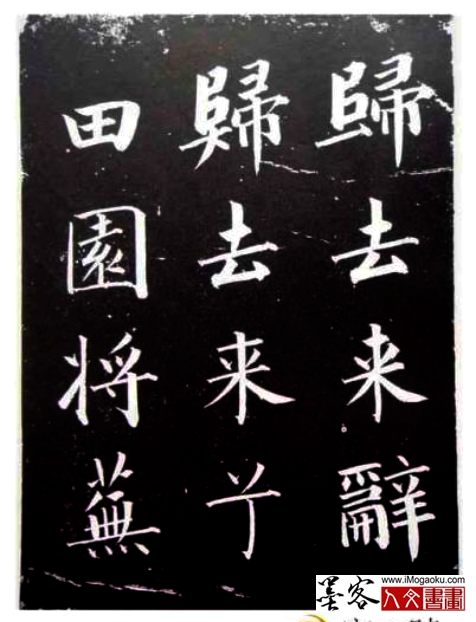 歸去来辭
歸去来兮
田園将蕪
墨客
www.iMogaoku.com
人文書畫